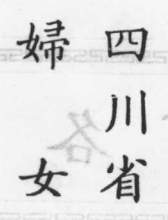 四川省
婦女